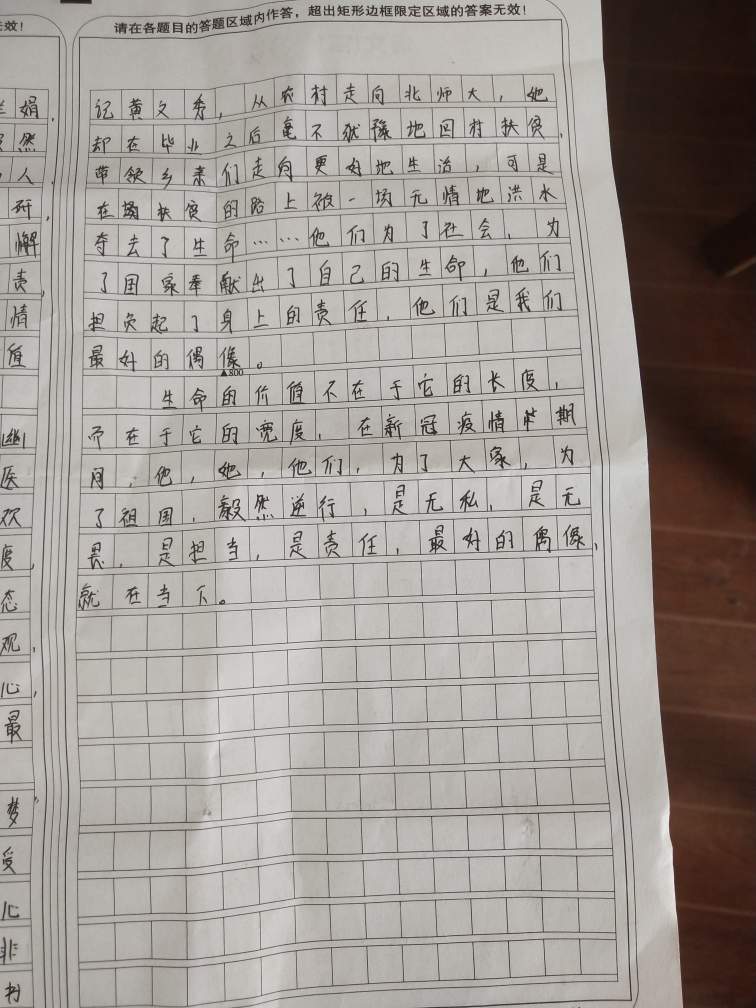 效!
请在各题目的答题区域内作答，超出矩形边框限定区域的答案无效!
娟，
然
人，
研，
懈
责，
情
值
幽
医
欢
度，
态
观，
心，
最
梦"
受
心
非
书
记黄文秀，从农村走向北师大，她
却在毕业之后毫不犹豫地回村扶贫，
带领乡亲们走向更好地生活，可是
在扶贫的路上被一场无情地洪水
夺去了生命……他们为了社会，为
了国家奉献出了自己的生命，他们
担负起了身上的责任，他们是我们
最好的偶像。
▲800
生命的价值不在于它的长度，
而在于它的宽度，在新冠疫情期
间，他，她，他们，为了大家，为
了祖国，毅然逆行，是无私，是无
畏，是担当，是责任，最好的偶像，
就在当下。